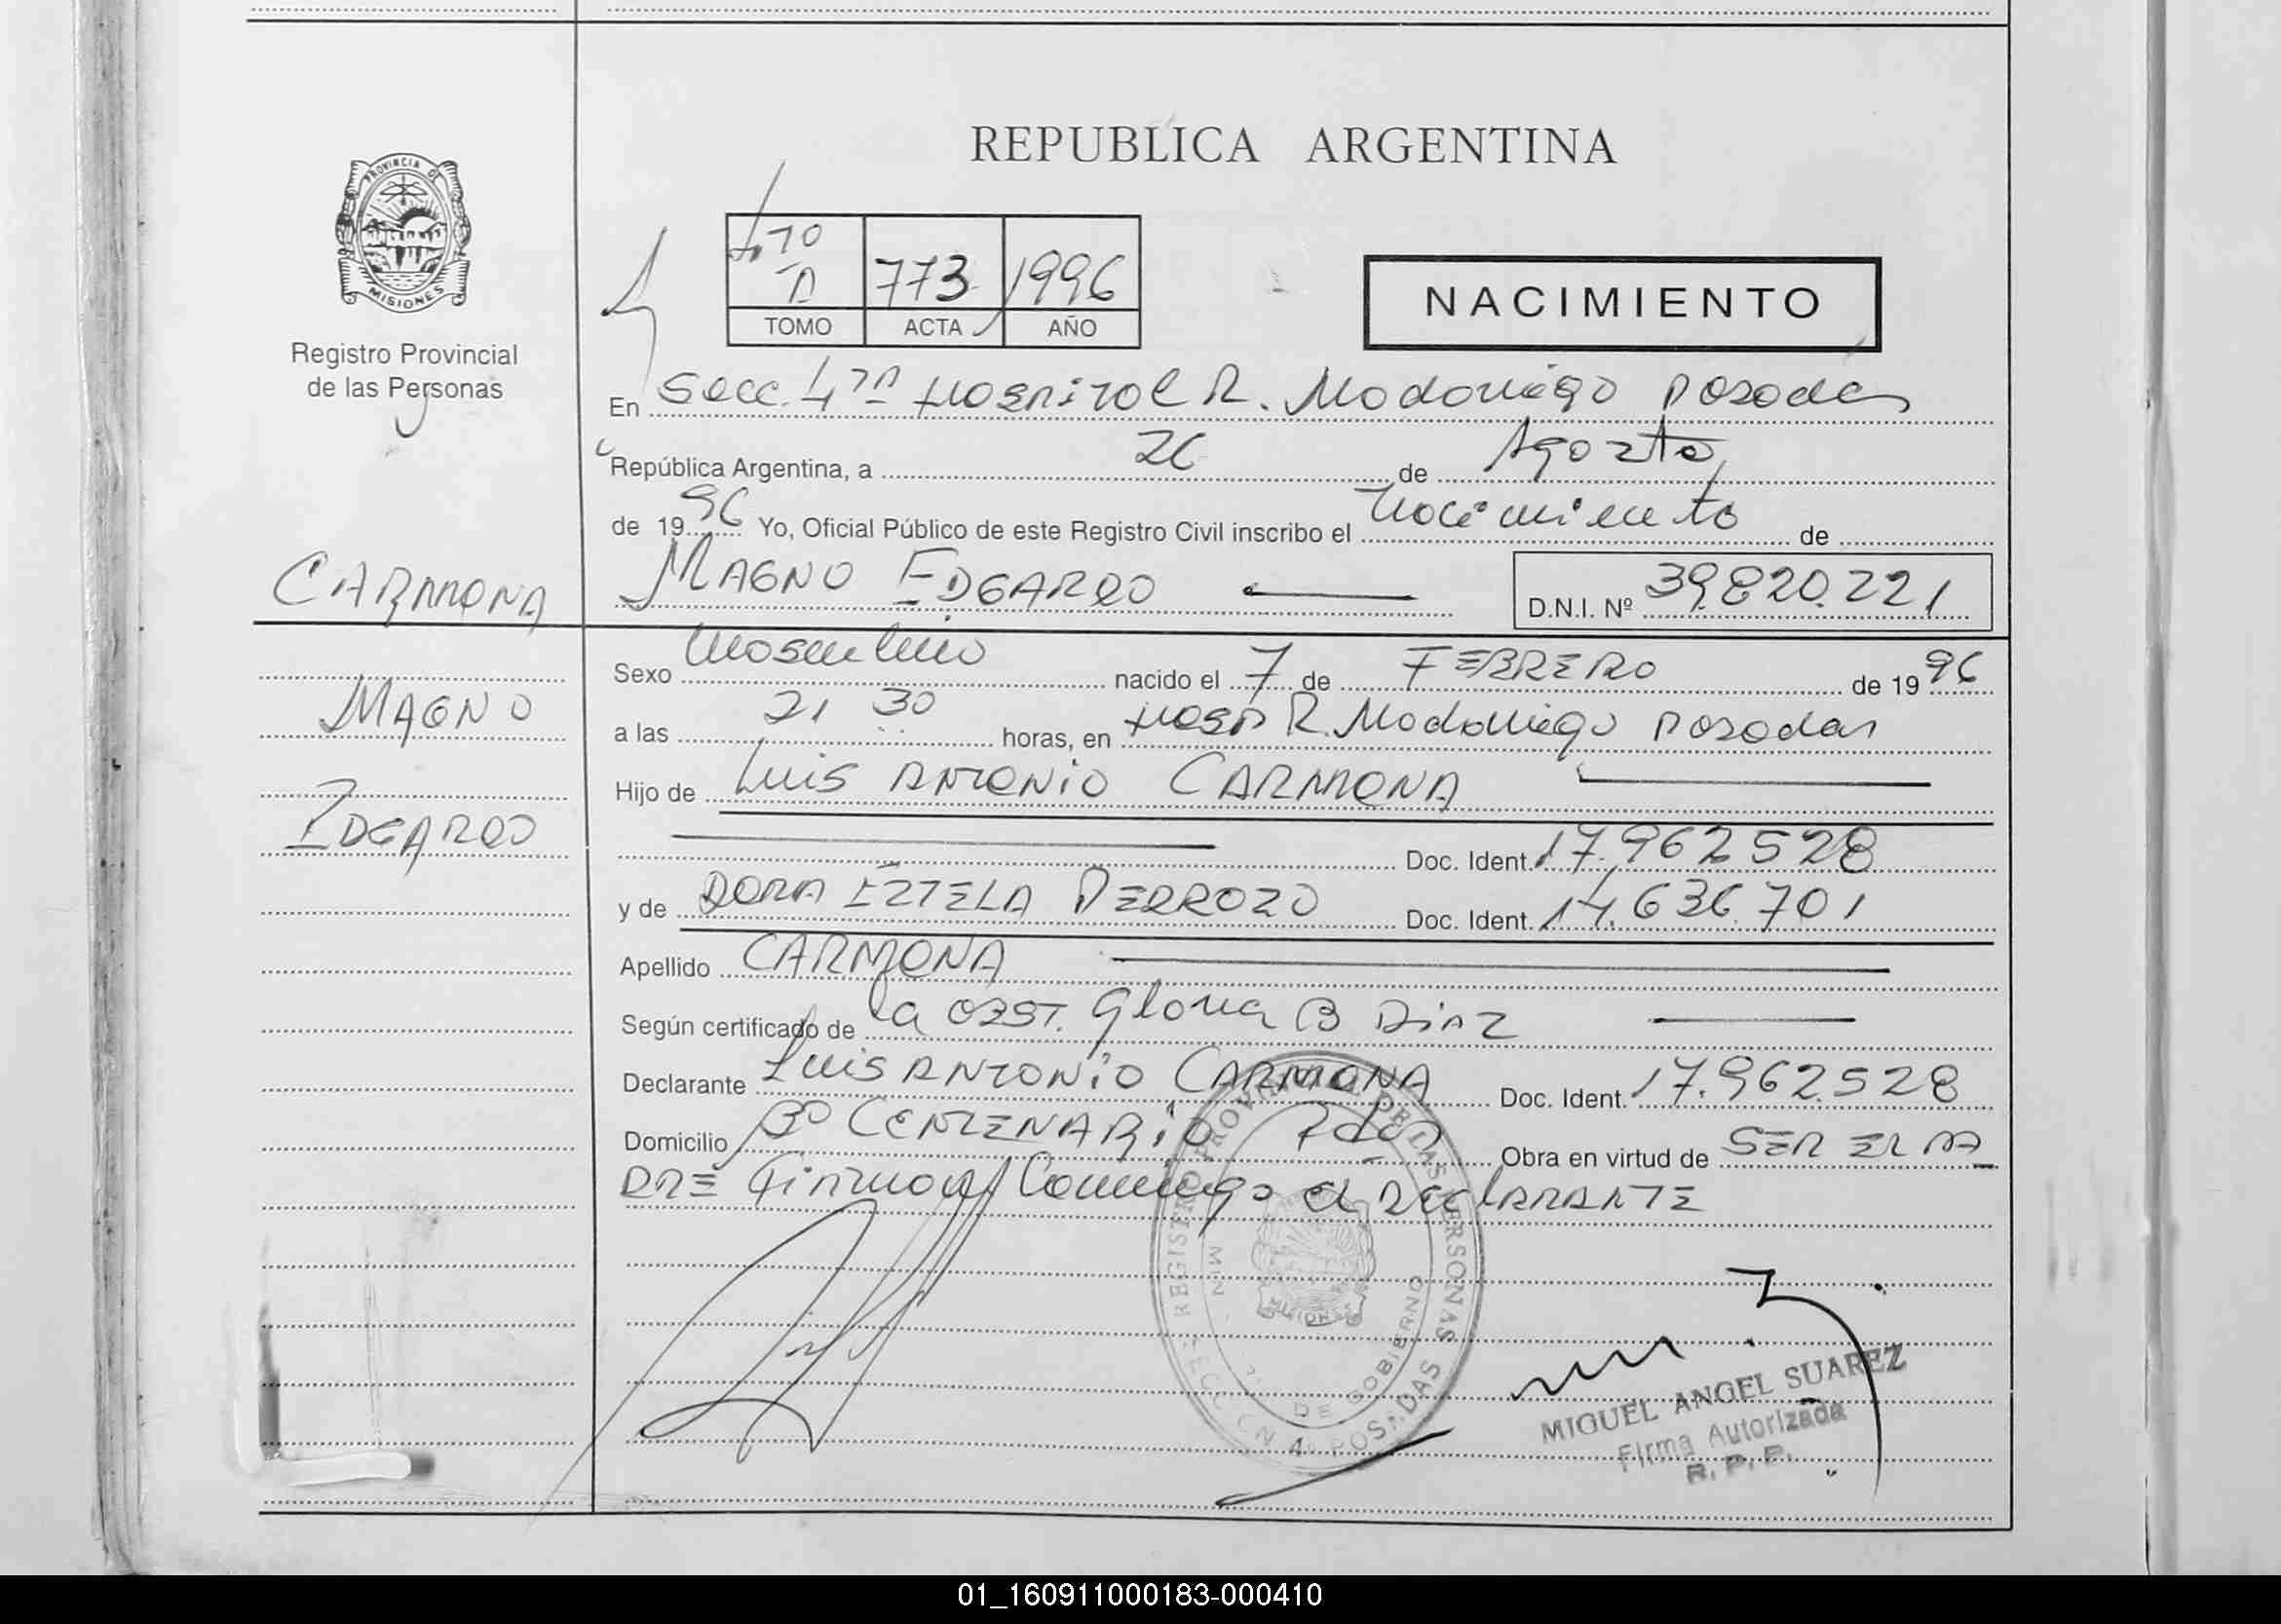 REPUBLICA ARGENTINA
PROVINCIA DE
MISIONES
Registro Provincial
de las Personas
4to
A 773 1996
TOMO ACTA AÑO
NACIMIENTO
En Secc. 4ta Hospital R. Madariaga Posadas
República Argentina, a 26 de Agosto
de 1996 Yo, Oficial Público de este Registro Civil inscribo el nacimiento de
CARMONA
MAGNO EDGARDO D.N.I. Nº 39.820.221
MAGNO
EDGARDO
Sexo masculino nacido el 7 de FEBRERO de 1996
a las 21 30 horas, en Hosp R. Madariaga Posadas
Hijo de Luis ANTONIO CARMONA
Doc. Ident. 17.962528
y de DORA EZTELA PERROZO Doc. Ident. 14.636.701
Apellido CARMONA
Según certificado de la OBST. Gloria B DiAZ
Declarante Luis ANTONiO CARMONA Doc. Ident. 17.962.528
Domicilio 3º CENTENARiO Pdas Obra en virtud de SER EL PA
DRE Firmand Conmigo el DEClARANTE
REGISTRO PROVINCIAL DE LAS PERSONAS
MIN. DE GOBIERNO
MISIONES
SECCION 4º POSADAS
MIGUEL ANGEL SUAREZ
Firma Autorizada
R. P. P.
01_160911000183-000410